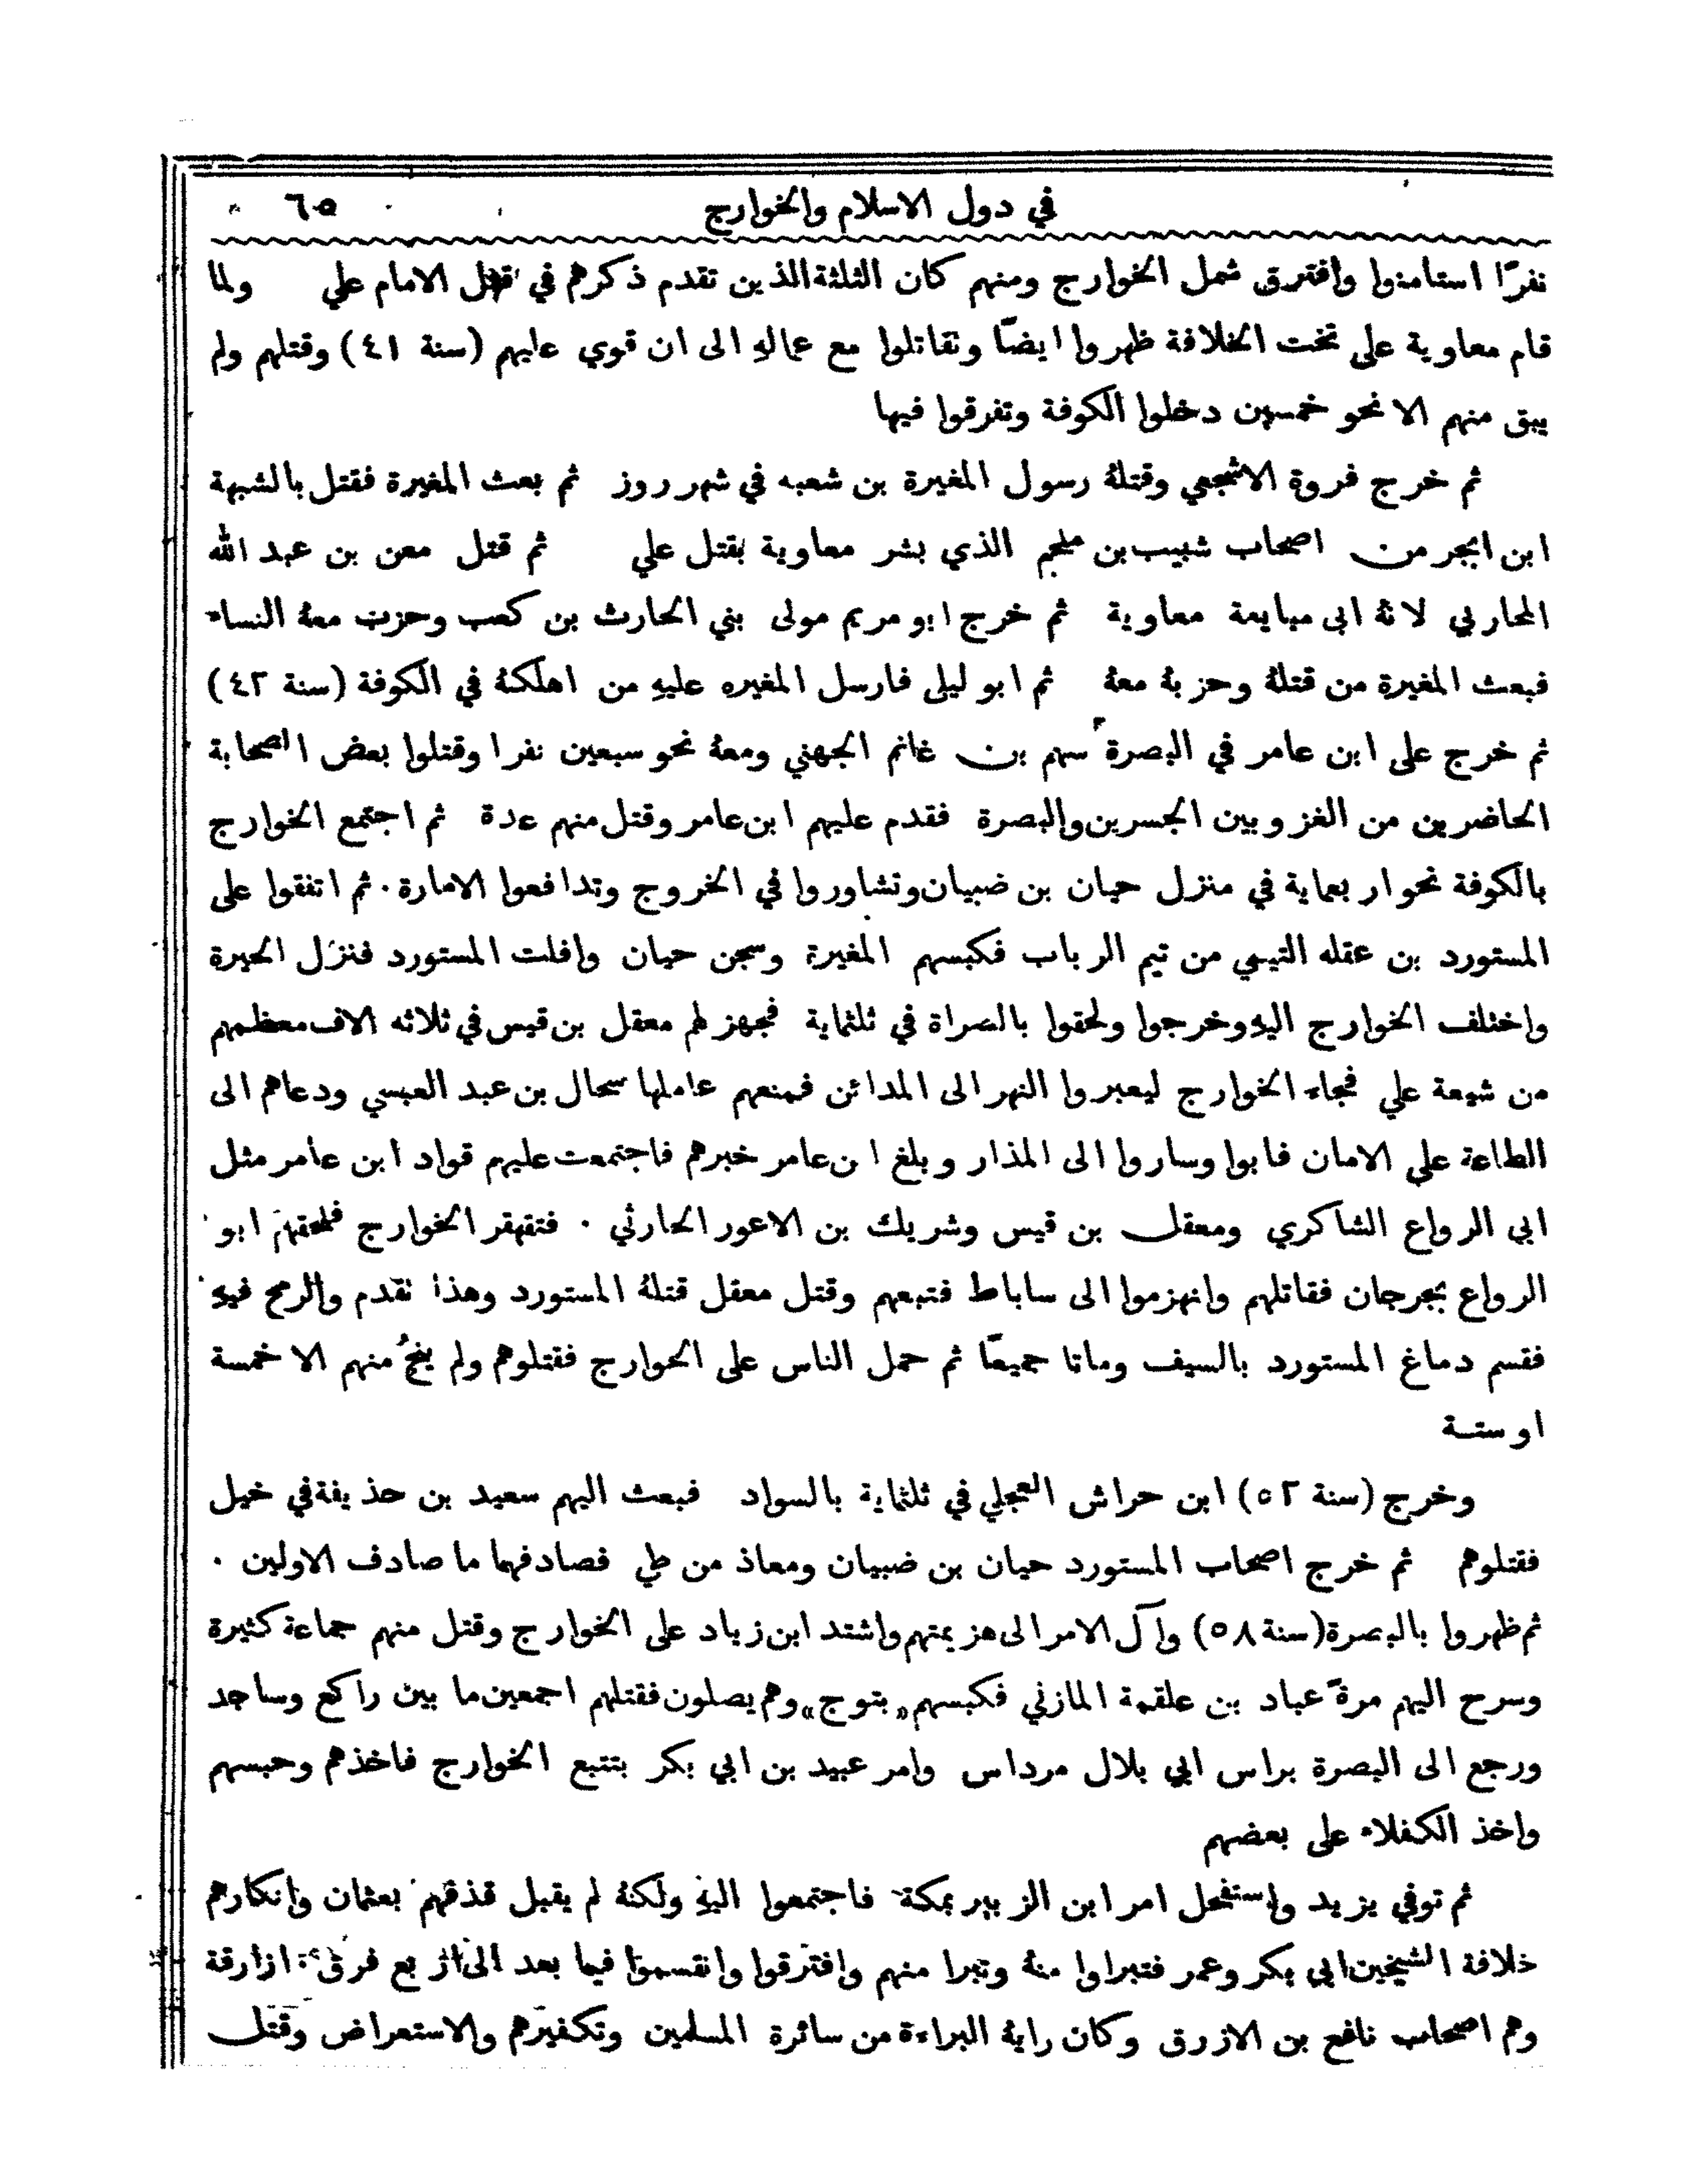 في دول الاسلام والخوارج ٦٥
نفرًا استامنوا وافترق شمل الخوارج ومنهم كان الثلثة الذين تقدم ذكرهم في قتل الامام علي ولما
قام معاوية على تخت الخلافة ظهروا ايضًا وتقاتلوا مع عماله الى ان قوي عليهم (سنة ٤١) وقتلهم ولم
يبق منهم الا نحو خمسين دخلوا الكوفة وتفرقوا فيها
ثم خرج فروة الاشجعي وقتلهُ رسول المغيرة بن شعبه في شهر روز ثم بعث المغيرة فقتل بالشبهة
ابن ابجر من اصحاب شبيب بن ملجم الذي بشر معاوية بقتل علي ثم قتل معن بن عبد الله
المحاربي لانهُ ابى مبايعة معاوية ثم خرج ابو مريم مولى بني الحارث بن كعب وحزبت معهُ النساء
فبعث المغيرة من قتلهُ وحزبهُ معهُ ثم ابو ليلى فارسل المغيره عليهِ من اهلكهُ في الكوفة (سنة ٤٢)
ثم خرج على ابن عامر في البصرة سهم بن غانم الجهني ومعهُ نحو سبعين نفرا وقتلوا بعض الصحابة
الحاضرين من الغزو بين الجسرين والبصرة فقدم عليهم ابن عامر وقتل منهم عدة ثم اجتمع الخوارج
بالكوفة نحوار بعماية في منزل حيان بن ضبيان وتشاوروا في الخروج وتدافعوا الامارة. ثم اتفقوا على
المستورد بن عقله التيمي من تيم الرباب فكبسهم المغيرة وسجن حيان وافلت المستورد فنزل الحيرة
واختلف الخوارج اليهِ وخرجوا ولحقوا بالصراة في ثلثماية فجهز لهم معقل بن قيس في ثلاثه الاف معظمهم
من شيعة علي فجاء الخوارج ليعبروا النهر الى المدائن فمنعهم عاملها سحال بن عبد العبسي ودعاهم الى
الطاعة على الامان فابوا وساروا الى المذار وبلغ ابن عامر خبرهم فاجتمعت عليهم قواد ابن عامر مثل
ابي الرواع الشاكري ومعقل بن قيس وشريك بن الاعور الحارثي . فتقهقر الخوارج فلحقهم ابو
الرواع بجرجان فقاتلهم وانهزموا الى ساباط فتبعهم وقتل معقل قتلهُ المستورد وهذا تقدم والرمح فيهِ
فقسم دماغ المستورد بالسيف وماتا جميعًا ثم حمل الناس على الخوارج فقتلوهم ولم ينجُ منهم الا خمسة
او ستة
وخرج (سنة ٥٢) ابن حراش العجلي في ثلثماية بالسواد فبعث اليهم سعيد بن حذيفة في خيل
فقتلوهم ثم خرج اصحاب المستورد حيان بن ضبيان ومعاذ من طي فصادفهما ما صادف الاولين .
ثم ظهروا بالبصرة (سنة ٥٨) وآل الامر الى هزيمتهم واشتد ابن زياد على الخوارج وقتل منهم جماعة كثيرة
وسرح اليهم مرةً عباد بن علقمة المازني فكبسهم «بتوج» وهم يصلون فقتلهم اجمعين ما بين راكع وساجد
ورجع الى البصرة براس ابي بلال مرداس وامر عبيد بن ابي بكر بتتبع الخوارج فاخذهم وحبسهم
واخذ الكفلاء على بعضهم
ثم توفي يزيد واستفحل امر ابن الزبير بمكة فاجتمعوا اليهِ ولكنهُ لم يقبل قذفهم بعثمان وانكارهم
خلافة الشيخين ابي بكر وعمر فتبراوا منهُ وتبرا منهم وافترقوا وانقسموا فيما بعد الى اربع فرق: ازارقة
وهم اصحاب نافع بن الازرق وكان رايهُ البراءة من سائرة المسلمين وتكفيرهم والاستعراض وقتل